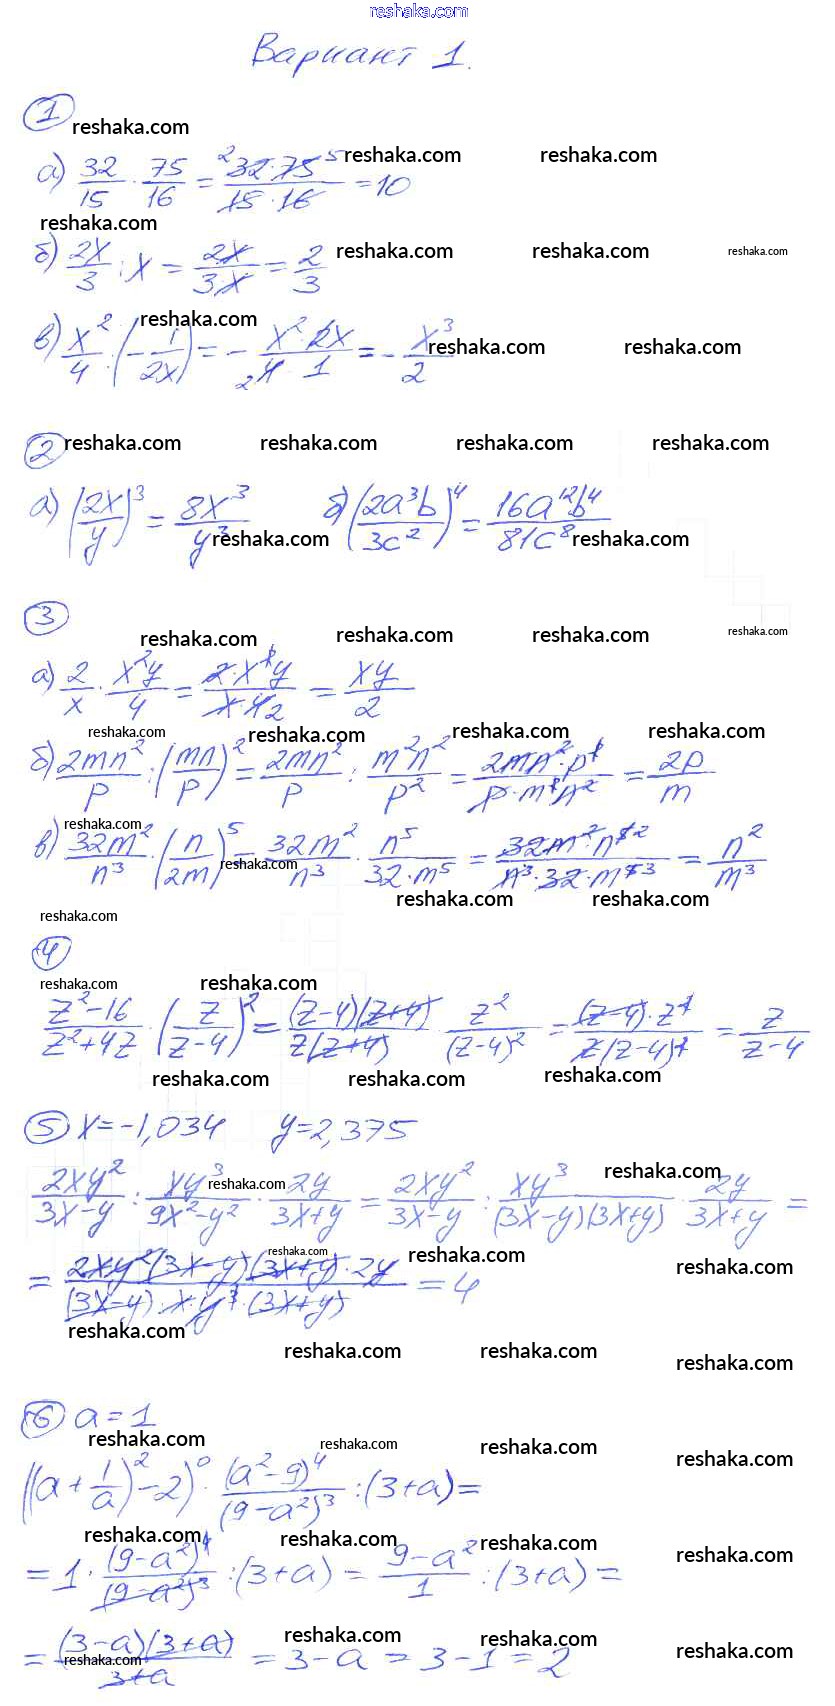 reshaka.com
Вариант 1.
1
reshaka.com
а) 32/15 · 75/16 = ²32·75⁵/15·16 = 10
reshaka.com reshaka.com
reshaka.com
б) 2x/3 : x = 2x/3·x = 2/3
reshaka.com reshaka.com reshaka.com
reshaka.com
в) x²/4 : (-1/2x) = - x²·2x/₂4·1 = - x³/2
reshaka.com reshaka.com
2
reshaka.com reshaka.com reshaka.com reshaka.com
а) (2x/y)³ = 8x³/y³ б) (2a³b/3c²)⁴ = 16a¹²b⁴/81c⁸
reshaka.com reshaka.com
3
reshaka.com reshaka.com reshaka.com reshaka.com
а) 2/x · x²y/4 = 2·x²y/x·4₂ = xy/2
reshaka.com reshaka.com reshaka.com reshaka.com
б) 2mn²/p : (mn/p)² = 2mn²/p : m²n²/p² = 2mn²·p²/p·m²n² = 2p/m
reshaka.com
в) 32m²/n³ · (n/2m)⁵ = 32m²/n³ · n⁵/32·m⁵ = 32m²·n⁵²/n³·32·m⁵³ = n²/m³
reshaka.com
reshaka.com reshaka.com
reshaka.com
4
reshaka.com reshaka.com
z²-16/z²+4z · (z/z-4)² = (z-4)(z+4)/z(z+4) · z²/(z-4)² = (z-4)·z²/z(z-4)² = z/z-4
reshaka.com reshaka.com reshaka.com
5 x=-1,034 y=2,375
reshaka.com reshaka.com
2xy²/3x-y : xy³/9x²-y² · 2y/3x+y = 2xy²/3x-y : xy³/(3x-y)(3x+y) · 2y/3x+y =
reshaka.com reshaka.com reshaka.com
= 2xy²(3x-y)(3x+y)·2y/(3x-y)·x·y³·(3x+y) = 4
reshaka.com
reshaka.com reshaka.com reshaka.com
6 a=1
reshaka.com reshaka.com reshaka.com reshaka.com
((a+1/a)²-2)⁰ · (a²-9)⁴/(9-a²)³ : (3+a) =
reshaka.com reshaka.com reshaka.com reshaka.com
= 1 · (9-a²)⁴/(9-a²)³ : (3+a) = 9-a²/1 : (3+a) =
reshaka.com reshaka.com reshaka.com reshaka.com
= (3-a)(3+a)/3+a = 3-a = 3-1 = 2